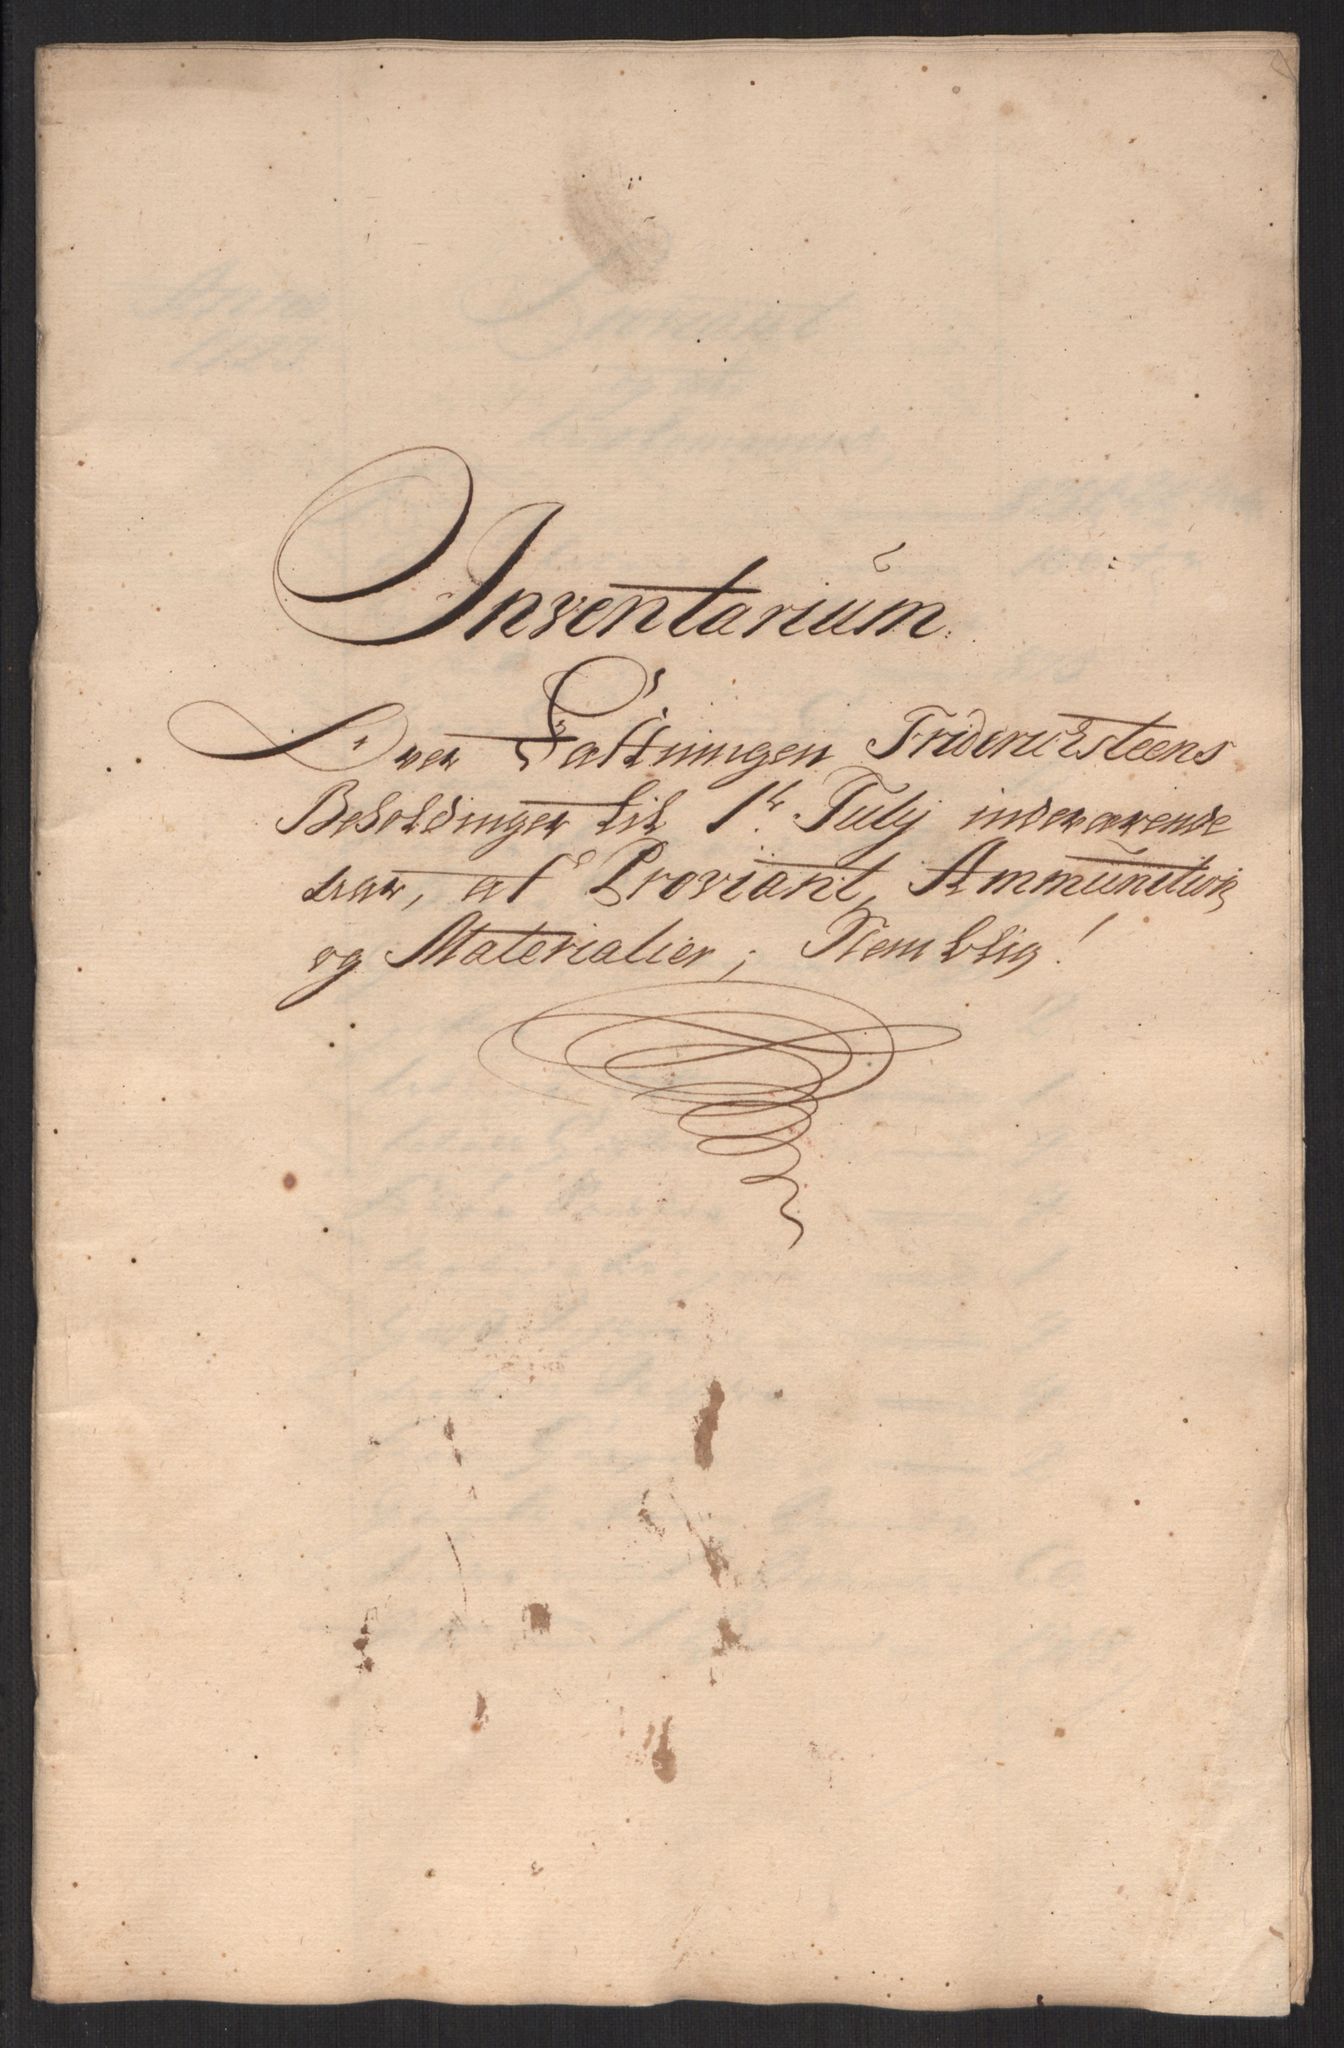 Inventarium
Over Fæstningen Friderichsteens
Beholdinger til 1te July indeværende
aar, af Proviant, Ammunition
og Materialier; Nemblig!